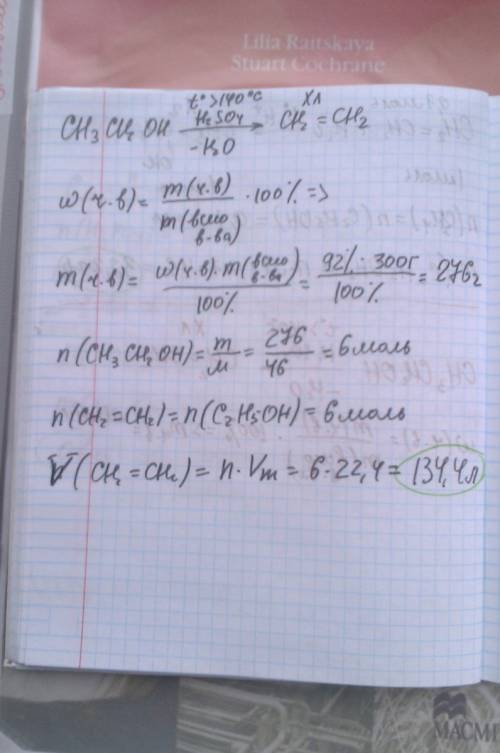 Lilia Raitskaya
Stuart Cochrane
t°>140°C Xл
CH3CH2OH H2SO4 → CH2=CH2
-H2O
w(ч.в)= m(ч.в) / m(всего в-ва) ·100% =>
m(ч.в)= w(ч.в)·m(всего в-ва) / 100% = 92%·300г / 100% = 276г
n(CH3CH2OH)= m/M = 276/46 = 6моль
n(CH2=CH2)=n(C2H5OH)=6моль
V(CH2=CH2)=n·Vm=6·22,4=134,4л
MACMI